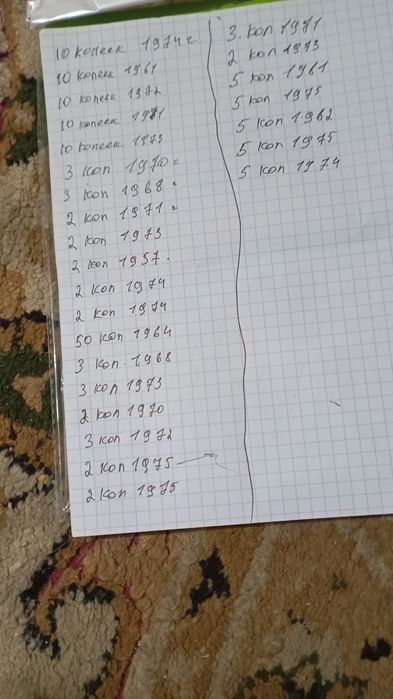 10 копеек 1974г
10 копеек 1961
10 копеек 1972
10 копеек 1971
10 копеек 1973
3 коп 1970г
3 коп 1968г
2 коп 1971г
2 коп 1973
2 коп 1957.
2 коп 1974
2 коп 1974
50 коп 1964
3 коп 1968
3 коп 1973
2 коп 1970
3 коп 1972
2 коп 1975
2 коп 1975
3. коп 1971
2 коп 1973
5 коп 1961
5 коп 1975
5 коп 1962
5 коп 1975
5 коп 1974